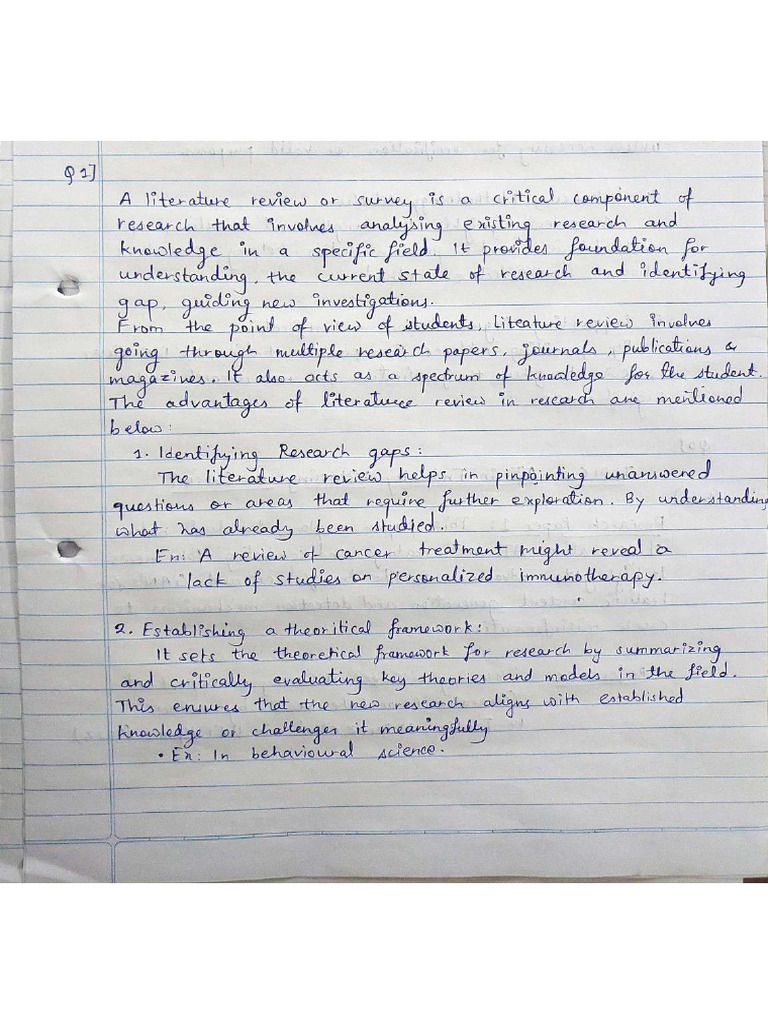 Q 1]
A literature review or survey is a critical component of
research that involves analysing existing research and
knowledge in a specific field. It provides foundation for
understanding, the current state of research and identifying
gap, guiding new investigations.
From the point of view of students, liteature review involves
going through multiple research papers, journals, publications &
magazines. It also acts as a spectrum of knowledge for the student.
The advantages of literature review in research are mentioned
below:
1. Identifying Research gaps:
The literature review helps in pinpointing unanswered
questions or areas that require further exploration. By understanding
what has already been studied.
Ex: A review of cancer treatment might reveal a
lack of studies on personalized immunotherapy.
2. Establishing a theoritical framework:
It sets the theoretical framework for research by summarizing
and critically evaluating key theories and models in the field.
This ensures that the new research aligns with established
knowledge or challenges it meaningfully
• Ex: In behavioural science.